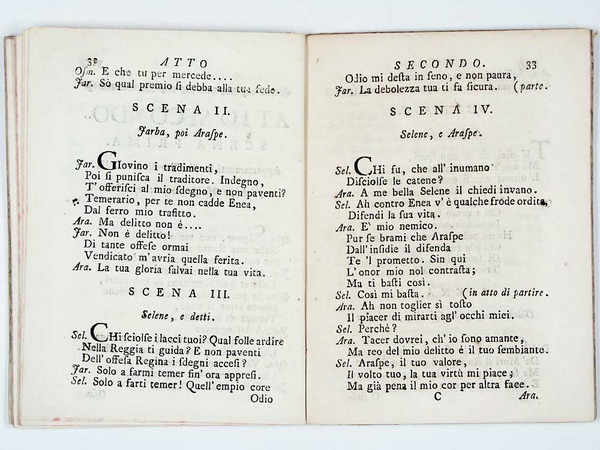 32
ATTO
Osm. E che tu per mercede....
Jar. Sò qual premio si debba alla tua fede.
SCENA II.
Jarba, poi Araspe.
Jar. GIovino i tradimenti,
Poi si punisca il traditore. Indegno,
T' offerisci al mio sdegno, e non paventi?
Temerario, per te non cadde Enea,
Dal ferro mio trafitto.
Ara. Ma delitto non è....
Jar. Non è delitto!
Di tante offese ormai
Vendicato m'avria quella ferita.
Ara. La tua gloria salvai nella tua vita.
SCENA III.
Selene, e detti.
Sel. CHi sciolse i lacci tuoi? Qual folle ardire
Nella Reggia ti guida? E non paventi
Dell' offesa Regina i sdegni accesi?
Jar. Solo a farmi temer fin' ora appresi.
Sel. Solo a farti temer! Quell' empio core
Odio
SECONDO.
33
Odio mi desta in seno, e non paura,
Jar. La debolezza tua ti fa sicura. (parte.
SCENA IV.
Selene, e Araspe.
Sel. CHi fu, che all' inumano
Disciolse le catene?
Ara. A me bella Selene il chiedi invano.
Sel. Ah contro Enea v' è qualche frode ordita,
Difendi la sua vita.
Ara. E' mio nemico.
Pur se brami che Araspe
Dall' insidie il difenda
Te 'l prometto. Sin qui
L' onor mio nol contrasta;
Ma ti basti così.
Sel. Così mi basta. (in atto di partire.
Ara. Ah non toglier sì tosto
Il piacer di mirarti agl' occhi miei.
Sel. Perchè?
Ara. Tacer dovrei, ch' io sono amante,
Ma reo del mio delitto è il tuo sembiante.
Sel. Araspe, il tuo valore,
Il volto tuo, la tua virtù mi piace;
Ma già pena il mio cor per altra face.
C
Ara.